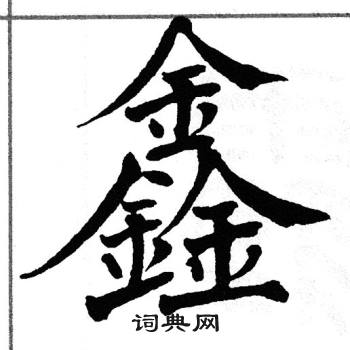 鑫
词典网